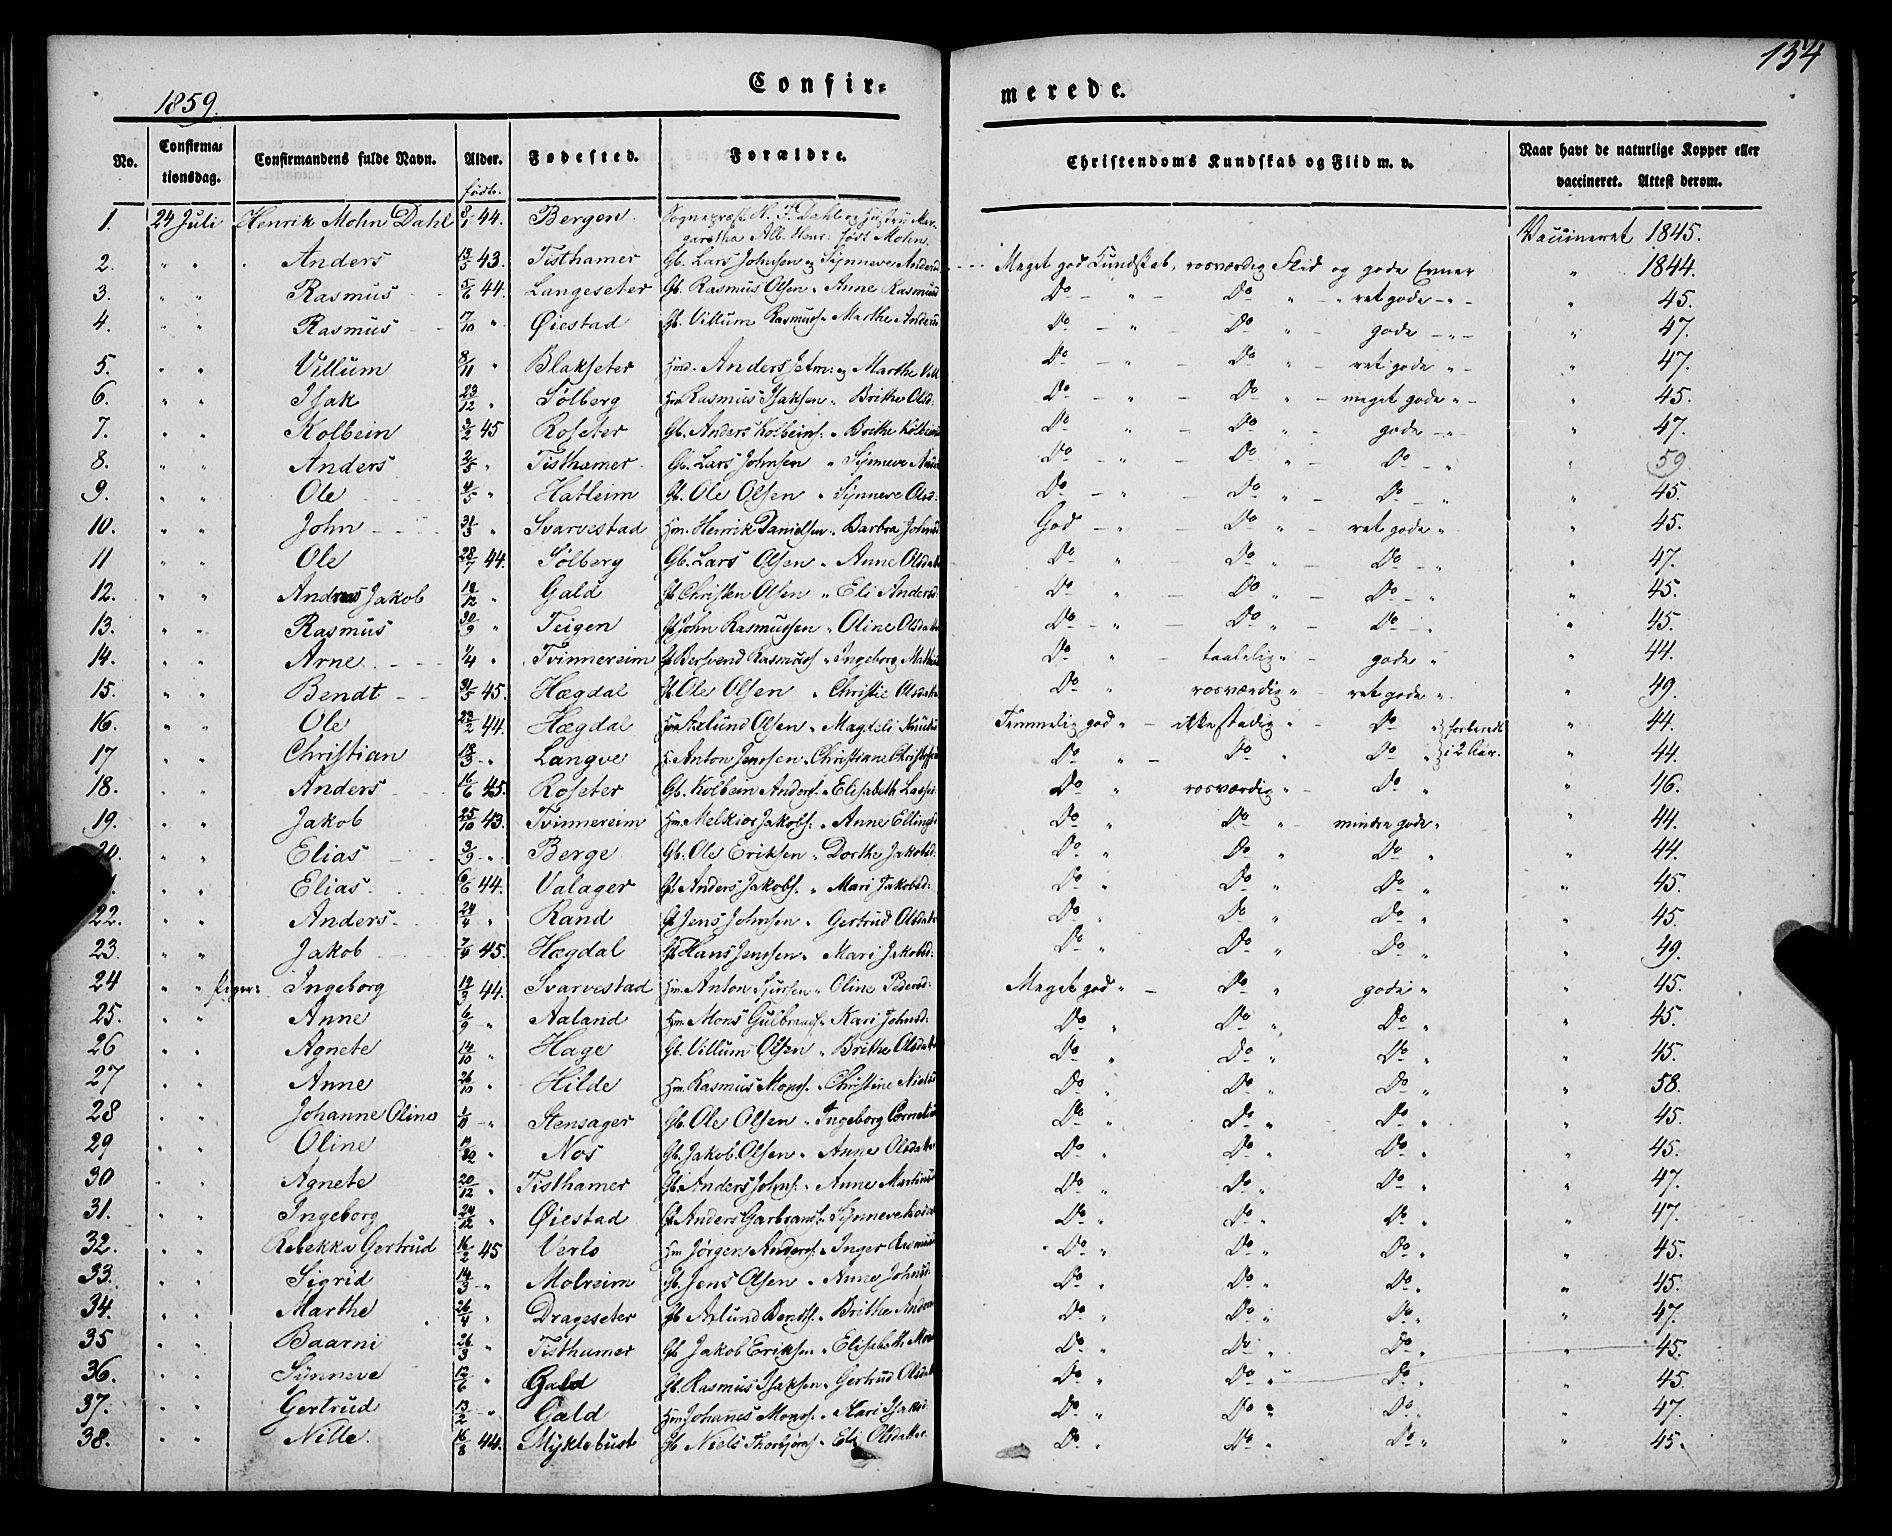 154
1859.
Confir-
merede.
No. Confirma- tionsdag. Confirmandens fulde Navn. Alder. Fødested. Forældre. Christendoms Kundskab og Flid m. v. Naar havt de naturlige Kopper eller vaccineret. Attest derom.
født.
1. 24 Juli Henrik Mohn Dahl 8/1 44. Bergen. Sognepræst N. F. Dahl og Hustru Mar-
garetha Alb. Henr: født Mohn. Vaccineret 1845.
2. " " Anders 13/5 43. Tisthamer Gb. Lars Johnsen og Synneve Andersd Meget god Kundskab, rosværdig Flid og gode Evner " 1844.
3. " " Rasmus 5/6 44. Langeseter Gb. Rasmus Olsen " Anne Rasmusd Do " Do " " ret gode " " 45.
4. " " Rasmus 17/10 " Øiestad Gb. Villum Rasmuss " Marthe Andersd Do " Do " gode " " 47.
5. " " Villum 8/11 " Blakseter Anders og Marthe Vill Do " Do " ret gode " " 47.
6. " " Isak 23/12 " Sølberg Hm Rasmus Isaksen " Brithe Olsd: Do " Do " meget gode " " 45.
7. " " Kolbein 3/2 45 Roseter Gb. Anders Kolbeins: " Brithe Kolbeinsd Do " Do " gode " " 47.
8. " " Anders 2/5 " Tisthamer Gb. Lars Johnsen " Synneve Do " Do " Do " " 59.
9. " " Ole 4/5 " Hatleim Gb. Ole Olsen " Synneve Olsd: Do " Do " Do " " 45.
10. " " John 31/3 " Svarvestad Hm. Henrik Danielsen " Barbra Johnsd God " Do " ret gode " " 45.
11 " " Ole 28/7 44. Sølberg Gb. Lars Olsen " Anne Olsdatt Do " Do " Do " " 47.
12. " " Andreas Jakob 18/12 " Gald Gb Christen Olsen " Eli Andersd: Do " Do " Do " " 45.
13. " " Rasmus 30/9 " Teigen Gb John Rasmussen " Oline Olsdatt Do " Do " Do " " 45.
14. " " Arne 1/4 " Tvinnereim Gb Bersvend Rasmuss " Ingeborg Do " taalelig " gode " " 44.
15. " " Bendt 31/5 45. Hægdal Gb. Ole Olsen " Christie Olsdatt Do " rosværdig " ret gode " " 49.
16. " " Ole 23/2 44. Hægdal Hm Axlund Olsen " Magdeli Temmelig god " ikke stadig " Do " forberedt " 44.
17 " " Christian 18/3 " Langve Anton Jenssen " Christiane Do " Do " Do " i 2 Aar. " 44.
18. " " Anders 16/6 45. Roseter Gb. Kolbein Anders. " Elisabeth Lasse Do " rosværdig " Do " " 46.
19. " " Jakob 25/10 43. Tvinnereim Hm. Melkior Jakobs. " Anne Ellings Do " Do " mindre gode " " 44.
20. " " Elias 3/9 " Berge Gb. Ole Eriksen " Dorthe Jakobsd: Do " Do " Do " " 44.
" " Elias. 6/6 44. Valager Gb. Anders Jakobs. " Mari Jakobsd: Do " Do " Do " " 45.
22. " " Anders 24/4 " Rand Gb Jens Johnsen " Gertrud Olsdatt Do " Do " Do " " 45.
23. " " Jakob 7/4 45. Hægdal Gb Hans Jenssen " Mari Jakobsd: Do " Do " Do " " 49.
24 " " Piger: Ingeborg 17/3 44. Svarvestad Hm. Anton Sjursen " Oline Pedersd: Meget god " Do " gode " " 45.
25. " " Anne 6/9 " Aaland Hm. Mons Gulbrands " Kari Johnsd: Do " Do " Do " " 45.
26 " " Agnete 14/10 " Hage Gb. Villum Olsen " Brithe Olsdatt Do " Do " Do " " 45.
27 " " Anne 26/10 " Hilde Hm. Rasmus Mons. " Christine Niels Do " Do " Do " " 58.
28 " " Johanne Oline 1/11 " Stensager Gb. Ole Olsen " Ingeborg Corneliusd Do " Do " Do " " 45.
29 " " Oline " Nos Gb. Jakob Olsen " Anne Olsdatt Do " Do " Do " " 45.
30 " " Agnete 20/12 " Tisthamer Gb. Anders Johns. " Anne Martinusd Do " Do " Do " " 47.
31. " " Ingeborg 24/12 " Øiestad Gb Anders Garbrans. " Synneve Do " Do " Do " " 47.
32. " " Rebekka Gertrud 16/2 45 Verlo Hm Jørgen Anders. " Inger Rasmusd Do " Do " Do " " 45.
33. " " Sigrid 14/3 " Molreim Gb. Jens Olsen " Anne Johnsd: Do " Do " Do " " 45.
34. " " Marthe 26/4 " Drageseter Gb Axlund Bendts. " Brithe Do " Do " Do " " 47.
35 " " Baarni 26/3 " Tisthamer Gb Jakob Eriksen " Elisabeth Do " Do " Do " " 45.
36. " " Synneve 12/6 " Gald Gb. Rasmus Isaksen " Gertrud Olsdatt Do " Do " Do " " 45.
37. " " Gertrud 13/2 " Gald Hm Johannes Mons. " Kari Isaksd. Do " Do " Do " " 47.
38. " " Nille. 16/8 44. Myklebust Gb Niels Thorbjørns. " Eli Olsdatter. Do " Do " Do " " 45.